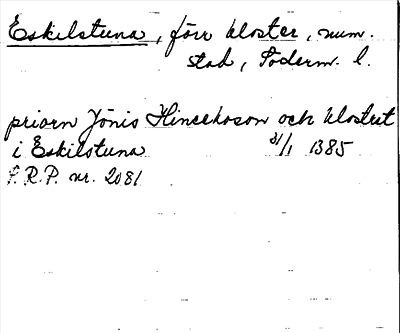 Eskilstuna, förr kloster, num.
stad, Söderm. l.
priorn Jönis Hincekoson och klostret
i Eskilstuna 31/1 1385
S.R.P. nr. 2081